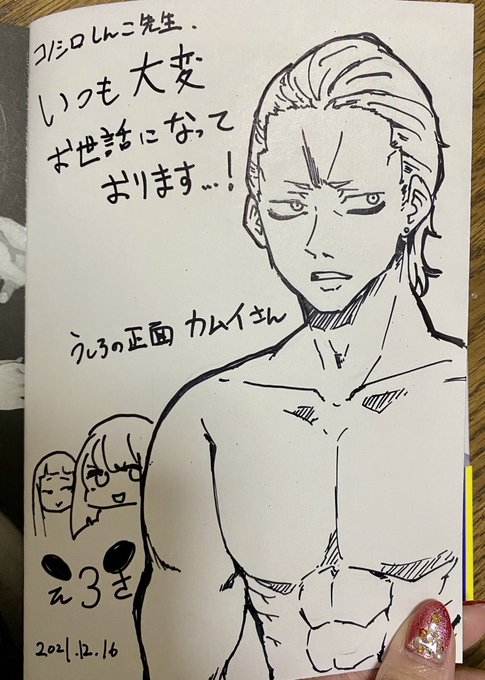 コノシロしんこ先生.
いつも大変
お世話になって
おります…!
うしろの正面 カムイさん
えろき
2021.12.16